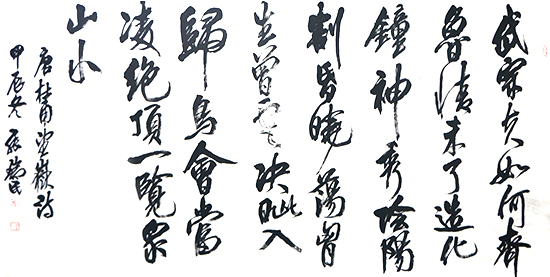 岱宗夫如何齊
魯未了造化
鐘神秀陰陽
割昏曉蕩胷
生曾雲决眦入
歸鳥會當
凌絶頂一覽眾
山小
唐杜甫望嶽詩
甲辰冬